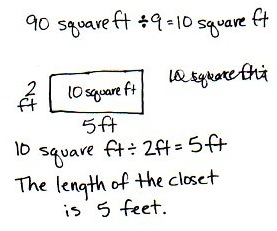 90 square ft ÷ 9 = 10 square ft
2 ft
10 square ft
5 ft
10 square ft ÷ 2 ft = 5 ft
The length of the closet
is 5 feet.